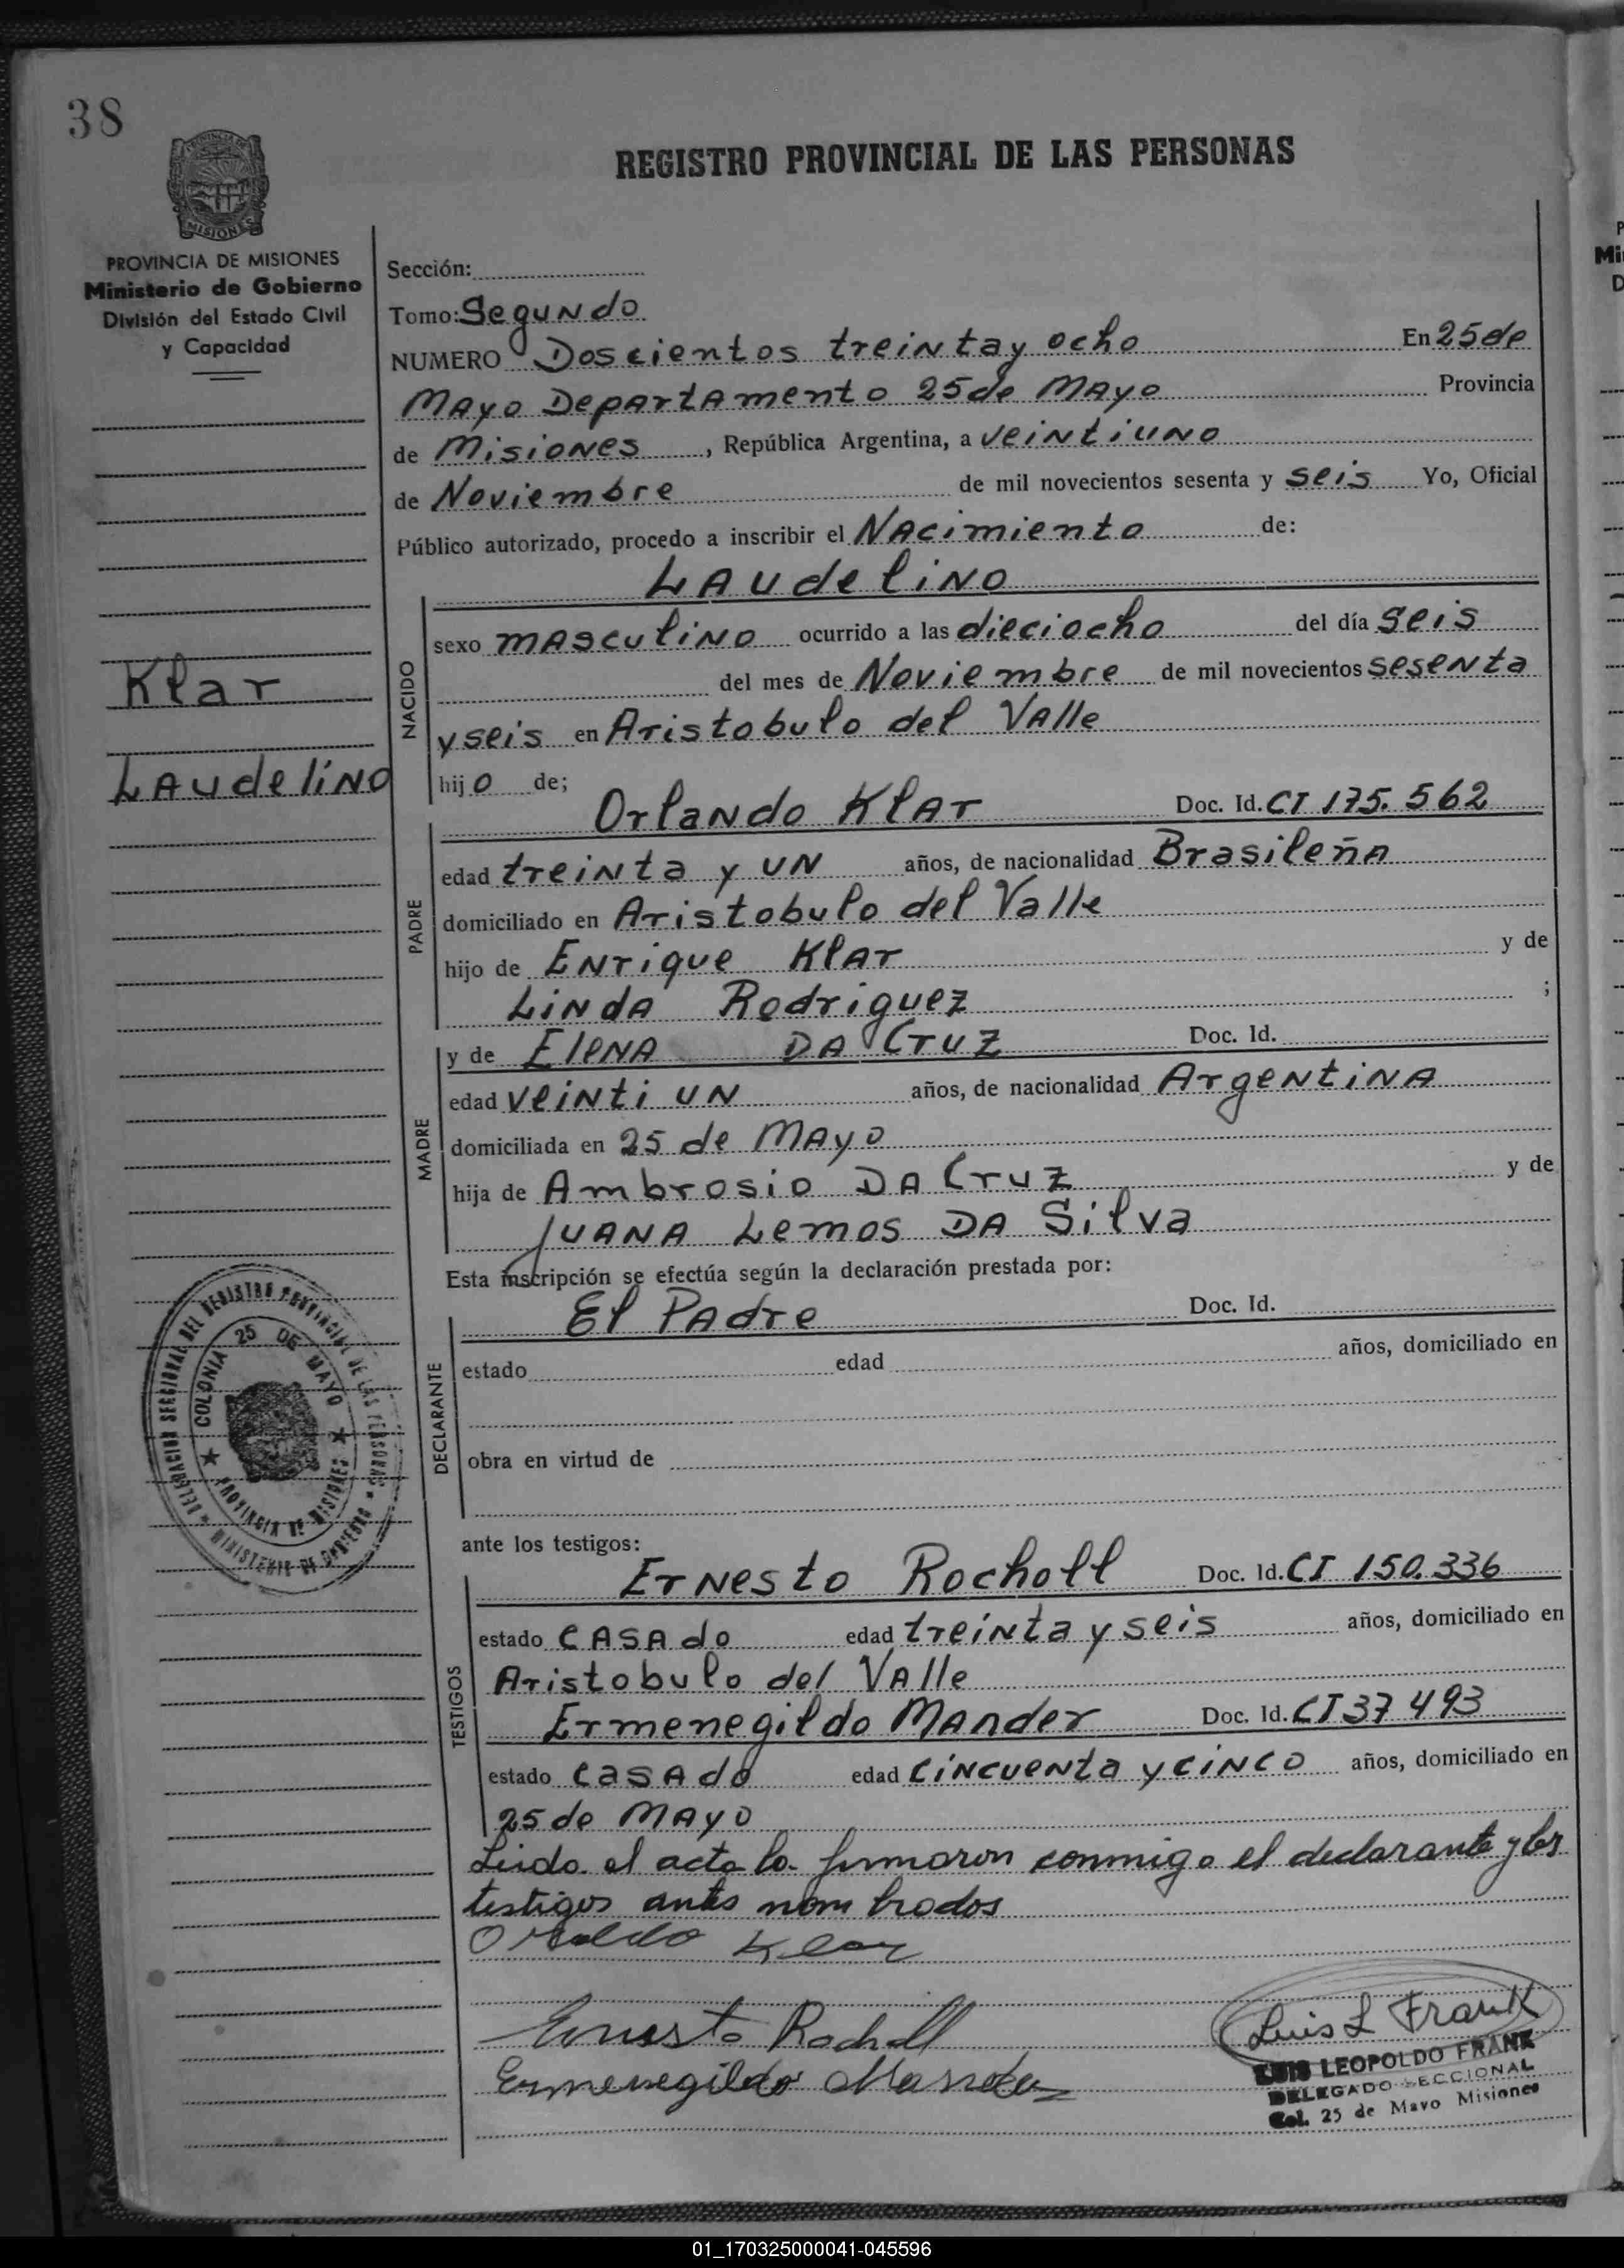 38
REGISTRO PROVINCIAL DE LAS PERSONAS
MISIONES
PROVINCIA DE MISIONES
Ministerio de Gobierno
División del Estado Civil
y Capacidad
Klar
Laudelino
Sección:
Tomo: Segundo
NUMERO Doscientos treinta y ocho En 25 de
Mayo Departamento 25 de Mayo Provincia
de Misiones, República Argentina, a veintiuno
de Noviembre de mil novecientos sesenta y seis Yo, Oficial
Público autorizado, procedo a inscribir el Nacimiento de:
Laudelino
NACIDO
sexo masculino ocurrido a las dieciocho del día seis
del mes de Noviembre de mil novecientos sesenta
y seis en Aristobulo del Valle
hijo de;
PADRE
Orlando Klar Doc. Id. CI 175.562
edad treinta y un años, de nacionalidad Brasileña
domiciliado en Aristobulo del Valle
hijo de Enrique Klar y de
Linda Rodriguez ;
MADRE
y de Elena Da Cruz Doc. Id.
edad veinti un años, de nacionalidad Argentina
domiciliada en 25 de Mayo
hija de Ambrosio Da Cruz y de
Juana Lemos Da Silva
Esta inscripción se efectúa según la declaración prestada por:
DECLARANTE
El Padre Doc. Id.
estado edad años, domiciliado en
obra en virtud de
DELEGACION SECCIONAL DEL REGISTRO PROVINCIAL DE LAS PERSONAS
MINISTERIO DE GOBIERNO
COLONIA 25 DE MAYO
PROVINCIA DE MISIONES
ante los testigos:
TESTIGOS
Ernesto Rocholl Doc. Id. CI 150.336
estado casado edad treinta y seis años, domiciliado en
Aristobulo del Valle
Ermenegildo Mander Doc. Id. CI 37 493
estado casado edad cincuenta y cinco años, domiciliado en
25 de Mayo
Leido el acta la firmaron conmigo el declarante y los
testigos antes nombrados
Klar
Ernesto Rocholl
Ermenegildo Mander
Luis L Frank
LUIS LEOPOLDO FRANK
DELEGADO SECCIONAL
Col. 25 de Mayo Misiones
01_170325000041-045596